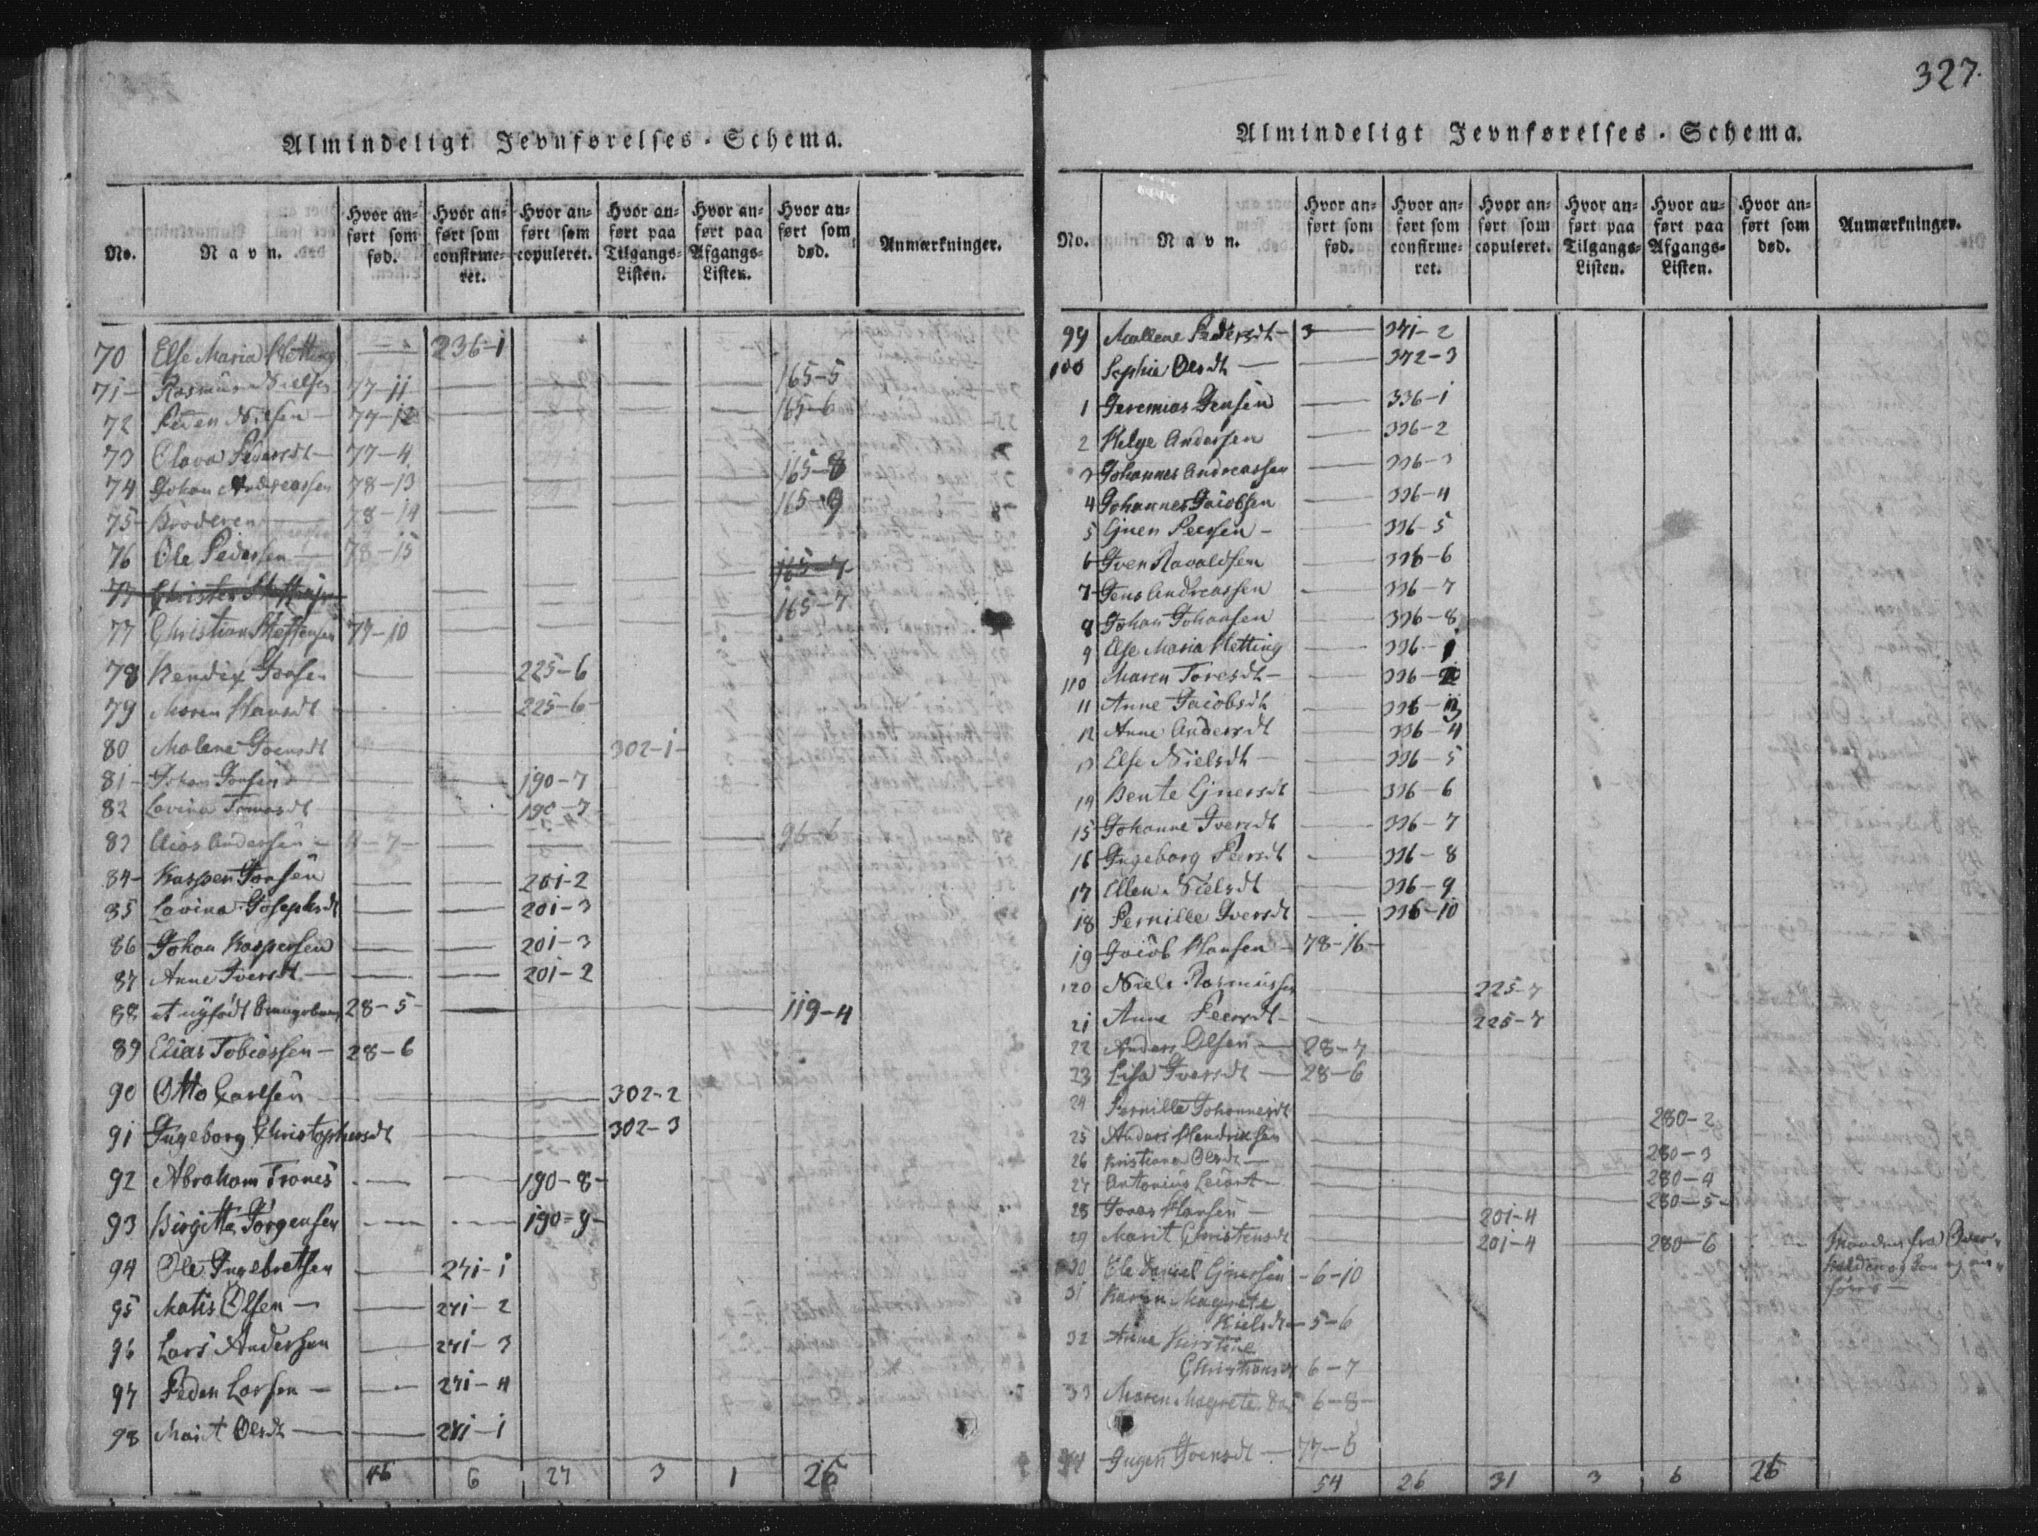 327.
Almindeligt Jevnførelses-Schema.
No. Navn. Hvor anført som fød. Hvor anført som confirmeret. Hvor anført som copuleret. Hvor anført paa Tilgangs-Listen. Hvor anført paa Afgangs-Listen. Hvor anført som død. Anmærkninger.
70 Else Maria Hetting 236-1
71 Rasmus Nielsen 77-11 165-5
72 Peder Nilsen 77-12 165-6
73 Olava Pedersdt 77-4
74 Johan Andreassen 78-13 165-8
75 Broderen 78-14 165-9
76 Ole Pedersen 78-15
77 Christen Steffensen 165-7
77 Christian Steffensen 77-10 165-7
78 Bendix Joosen 225-6
79 Maren Hansdt 225-6
80 Malene Joensdt 302-1
81 Johan Jonsen 190-7
82 Lovina Tomasdt 190-7
83 Andersen 4-7 96-6
84 Kasper Joosen 201-2
85 Lovina Josephsdt 201-3
86 Johan Kaspersen 201-3
87 Anne Iversdt 201-2
88 et nyfødt Drengebarn 28-5 119-4
89 Elias Tobiassen 28-6
90 Otto Carlsen 302-2
91 Ingeborg Christophersdt 302-3
92 Abraham Trones 190-8
93 Birgitte Jørgensen 190-9
94 Ole Ingebretsen 241-1
95 Matis Olsen 241-2
96 Lars Andersen 241-3
97 Peder Larsen 241-4
98 Marit Olsdt 241-1
46 6 27 3 1 26
Almindeligt Jevnførelses-Schema.
No. Navn. Hvor anført som fød. Hvor anført som confirmeret. Hvor anført som copuleret. Hvor anført paa Tilgangs-Listen. Hvor anført paa Afgangs-Listen. Hvor anført som død. Anmærkninger.
99 Mallene Pedersdt 241-2
100 Sophie Olsdt 242-3
1 Jeremias Jensen 236-1
2 Helge Andersen 236-2
3 Johannes Andreassen 236-3
4 Johannes Jacobsen 236-4
5 Ejner Peersen 236-5
6 Iver Ravaldsen 236-6
7 Jens Andreassen 236-7
8 Johan Johansen 236-8
9 Else Maria Hetting 236-1
110 Maren Toresdt 236-2
11 Anne Jacobsdt 236-3
12 Anne Andersdt 236-4
13 Else Nielsdt 236-5
14 Bente Ejnersdt 236-6
15 Johanne Iversdt 236-7
16 Ingeborg Peersdt 236-8
17 Ellen Nielsdt 236-9
18 Pernille Iversdt 236-10
19 Jacob Hansen 78-16
120 Niels Rasmussen 225-7
21 Anne Peersdt 225-7
22 Anders Olsen 28-7
23 Lisa Iversdt 28-6
24 Pernille Johannesdt 280-2
25 Anders Hendriksen 280-3
26 Kristiana Olsdt 280-4
27 Antonius 280-5
28 Joons Hansen 201-4
29 Marit Christensdt 201-4 280-6
30 Ole Daniel Ejnersen 6-10
31 Karen Magrete
Nielsdt 5-6
32 Anne Kirstine
Christiansdt 6-7
33 Maren Magrete 6-8
34 Inger Joensdt 77-5
54 26 31 3 6 26